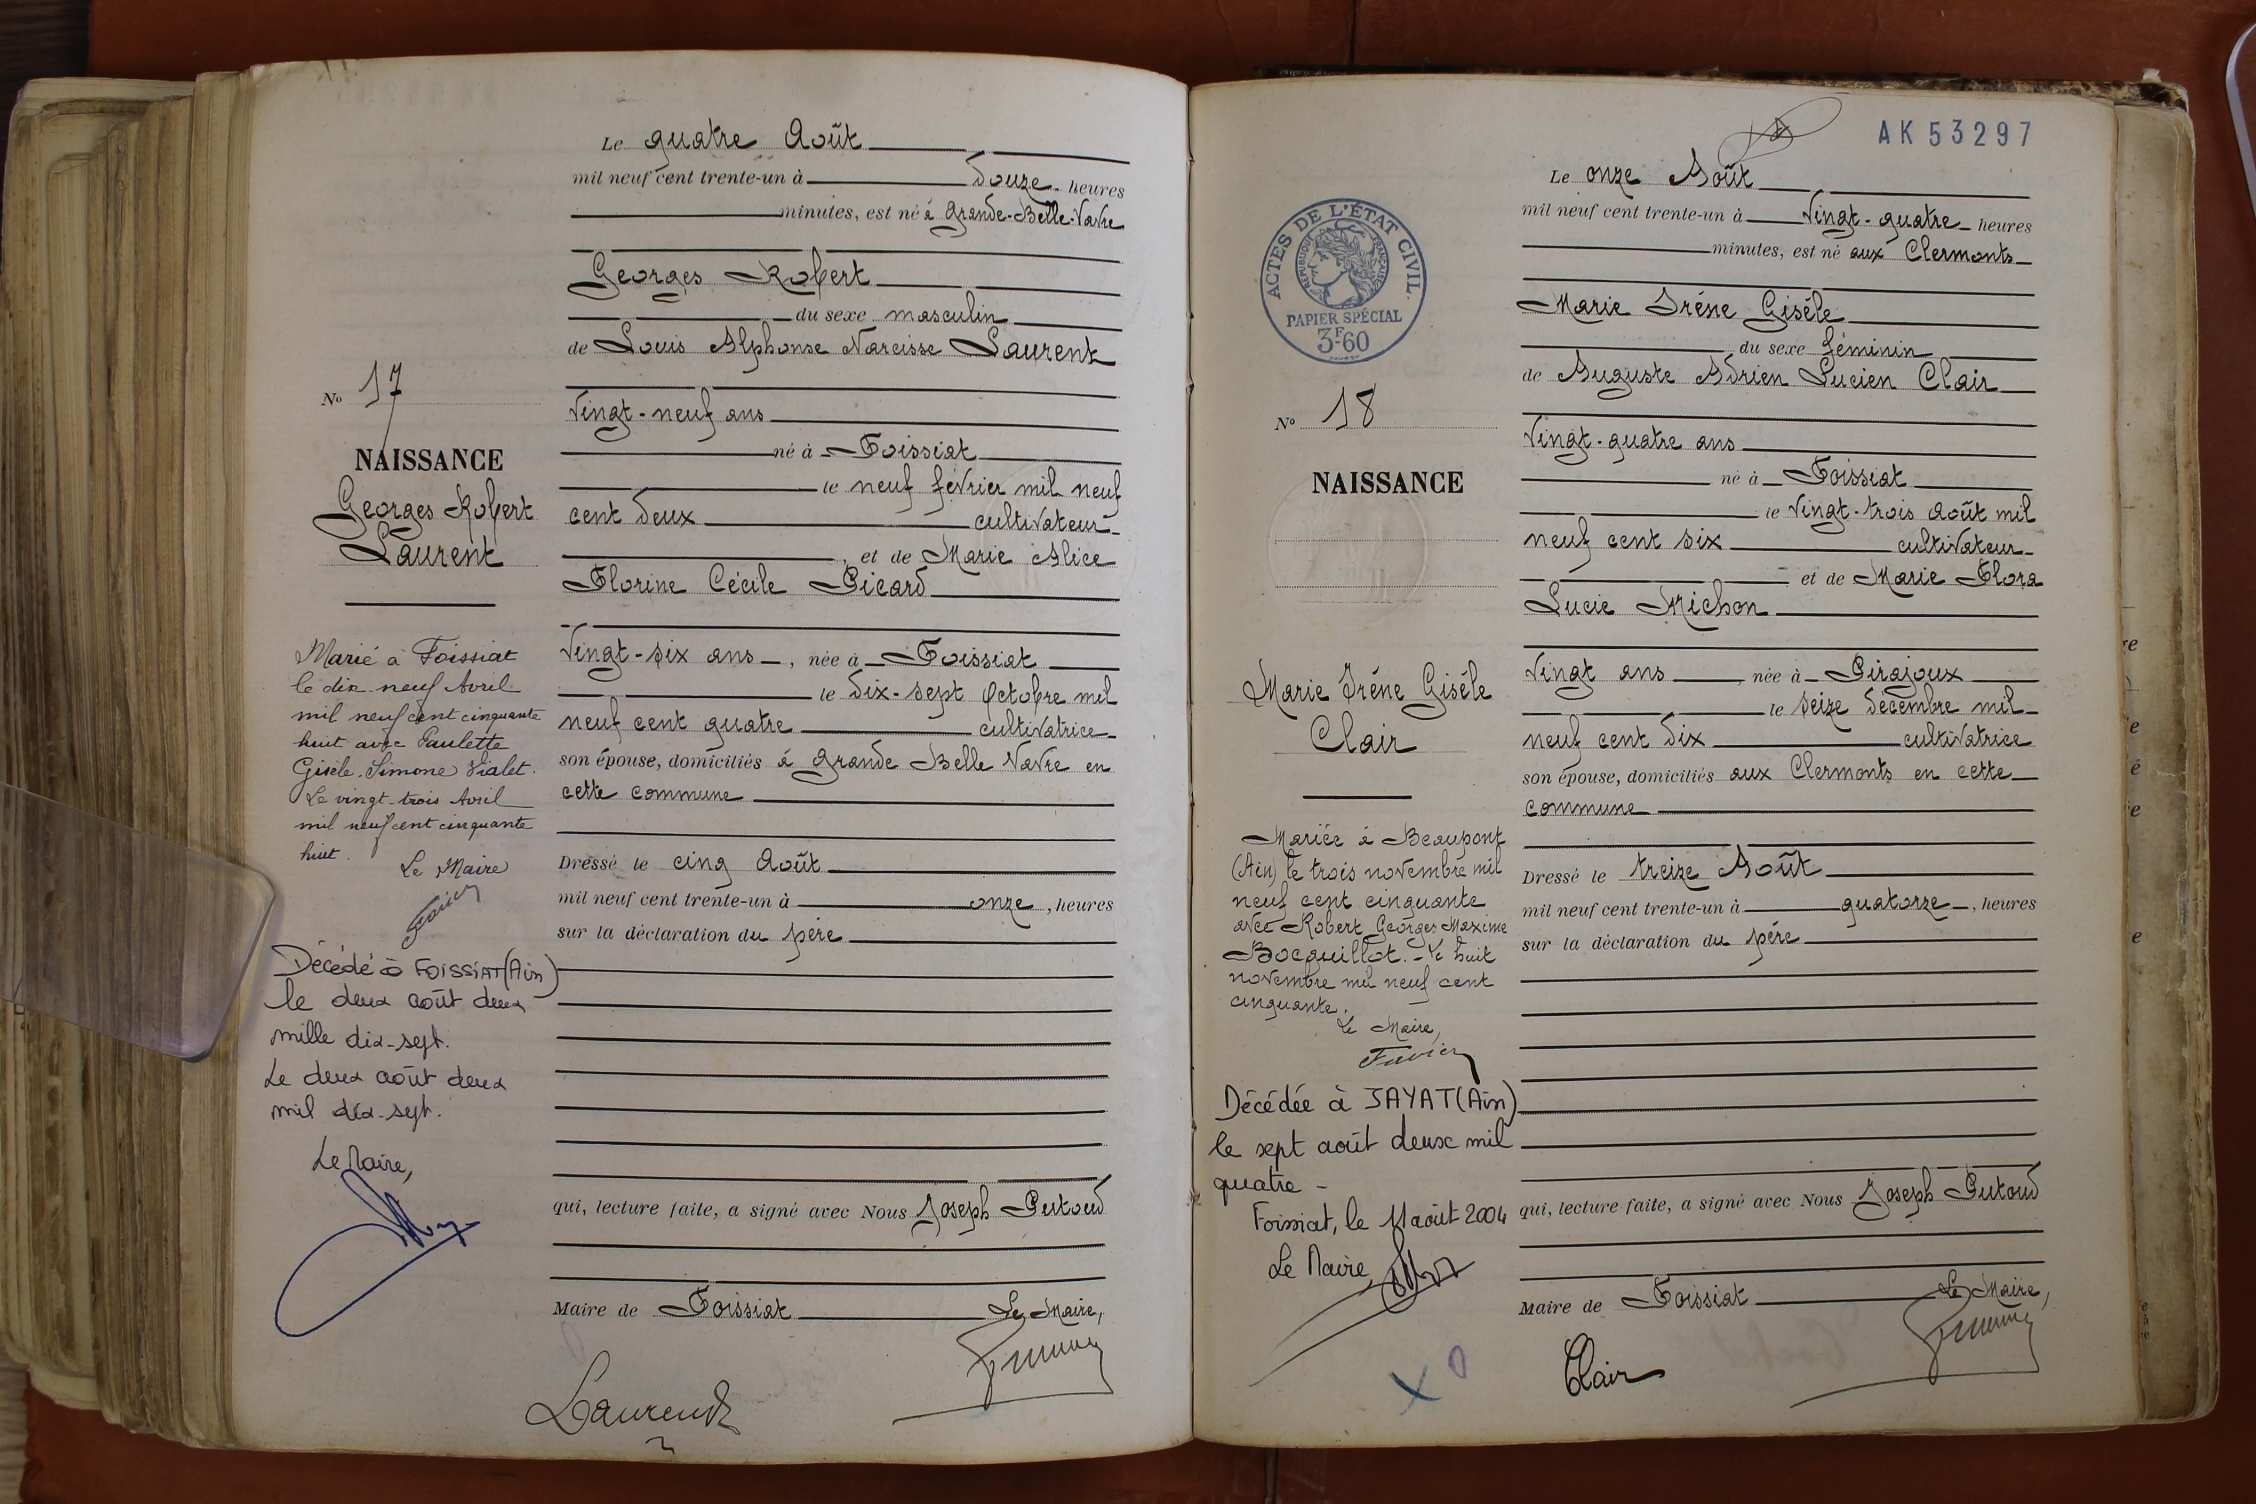 Le quatre Août
mil neuf cent trente-un à douze heures
minutes, est né à Grande-Belle-Vavre
Georges Robert
du sexe masculin
de Louis Alphonse Narcisse Laurent
No 17
Vingt-neuf ans
né à Foissiat
NAISSANCE
le neuf février mil neuf
Georges Robert
cent deux cultivateur
Laurent
et de Marie Alice
Florine Cécile Picard
Marié à Foissiat
le dix neuf Avril
mil neuf cent cinquante
huit avec Paulette
Gisèle Simone Vialet.
Le vingt-trois Avril
mil neuf cent cinquante
huit.
Le Maire
Décédé à FOISSIAT (Ain)
le deux août deux
mille dix-sept.
Le deux août deux
mil dix-sept.
Le Maire,
Vingt-six ans, née à Foissiat
le dix-sept Octobre mil
neuf cent quatre cultivatrice
son épouse, domiciliés à Grande Belle Vavre en
cette commune
Dressé le cinq Août
mil neuf cent trente-un à onze, heures
sur la déclaration du père
qui, lecture faite, a signé avec Nous Joseph Putoud
Maire de Foissiat Le Maire,
Laurent
AK 53297
Le onze Août
mil neuf cent trente-un à Vingt-quatre heures
minutes, est né aux Clermonts
Marie Iréne Gisèle
du sexe féminin
de Auguste Adrien Lucien Clair
ACTES DE L'ÉTAT CIVIL.
RÉPUBLIQUE FRANÇAISE
PAPIER SPÉCIAL
3F60
No 18
Vingt-quatre ans
né à Foissiat
NAISSANCE
le Vingt-trois août mil
neuf cent six cultivateur
et de Marie Flora
Lucie Michon
Marie Iréne Gisèle
Clair
Mariée à Beaupont
(Ain) le trois novembre mil
neuf cent cinquante
avec Robert Georges Maxime
Bocquillot. - Le huit
novembre mil neuf cent
cinquante.
Le Maire,
Favier
Décédée à JAYAT (Ain)
le sept août deux mil
quatre -
Foissiat, le 11 août 2004
Le Maire,
Vingt ans née à Pirajoux
le seize décembre mil
neuf cent dix cultivatrice
son épouse, domiciliés aux Clermonts en cette
commune
Dressé le treize Août
mil neuf cent trente-un à quatorze, heures
sur la déclaration du père
qui, lecture faite, a signé avec Nous Joseph Putoud
Maire de Foissiat Le Maire,
Clair